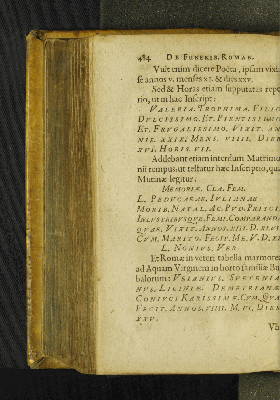 484 DE FUNERIB. ROMAN.
Vult enim dicere Poëta, ipsum vixis
se annos v. menses XI. & dies XXV.
Sed & Horas etiam supputatas repe
rio, ut in hac Inscript:
VALERIA. TROPHIMA. FILIO
DULCISSIMO. ET. PIENTISSIMO
ET. FRUGALISSIMO. VIXIT. AN
NIS. XXIX. MENS. VIIII. DIEB
XVI. HORIS. VII.
Addebant etiam interdum Matrimo
nii tempus: ut testatur hæc Inscriptio, quæ
Mutinæ legitur.
MEMORIÆ. CLA. FEM.
L. PEDUCAEAE. JULIANAE
MORIB. NATAL. AC. PUD. PRISCI
INLUSTRIBUSQUE. FEMI. COMPARAND
QUAE. VIXIT. ANNOS. XIII. D.
CUM. MARITO. FECIT. ME. V. D.
L. NONIUS. VER
Et Romæ in veteri tabella marmorea
ad Aquam Virginem in horto familiæ Bu
balorum: VEIANIUS.
NUS. LICINIÆ. DEMETRIANÆ
CONIUGI KARISSIMÆ. CUM. QUA
FECIT. ANNOS. VIIII. M. VI. DIES
XXV.
Vb